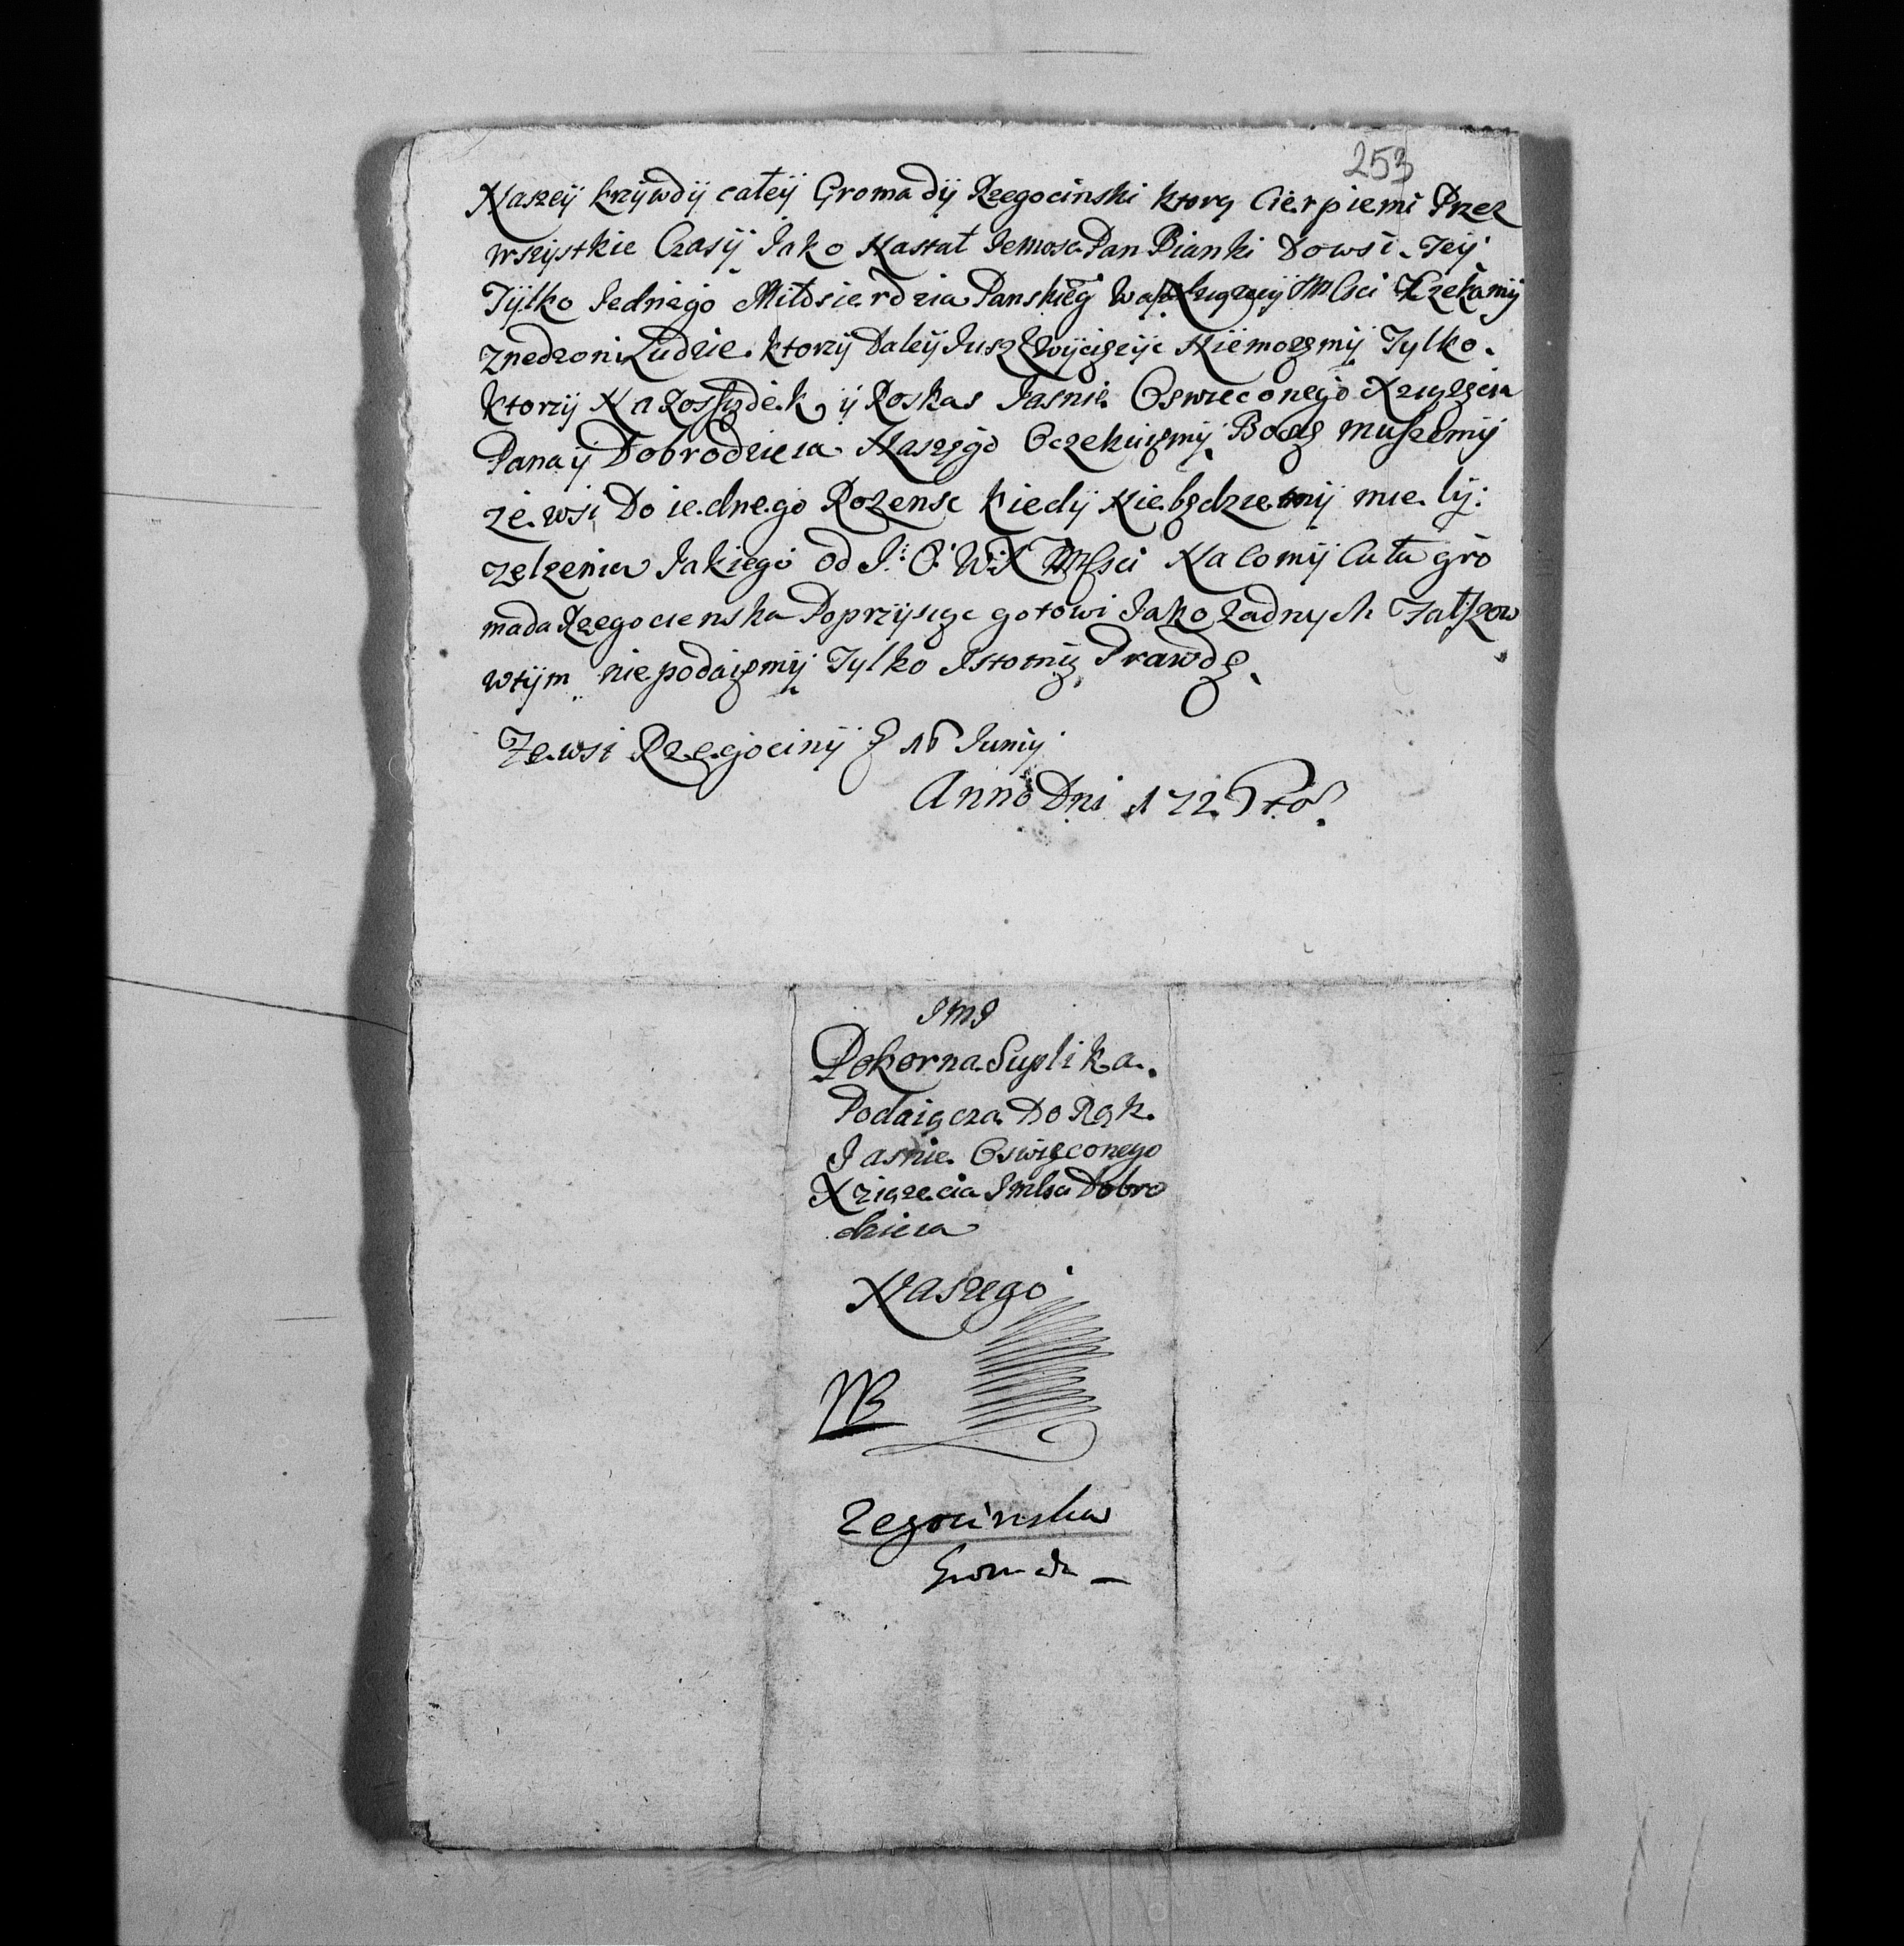 253
Naszeÿ krzÿwdÿ całeÿ Gromadÿ Rzegocinski ktorą Cierpiemi Przez
wszÿstkie Czasÿ Jako Nastał Jemosc Pan Bianki Dowsi Teÿ
Tÿlko Jednego Miłosierdzia Panskieg Mlsci Czekamÿ
znedzoni Ludzie ktorzÿ Daleÿ Jusz Zwÿcięzÿc Niemozemÿ Tylko
ktorzÿ Na Rossądek ÿ Roskas Jasnie Oswieconego Xzıązęcia
Pana ÿ Dobrodzieia Naszęgo Oczekuięmÿ Bo muszemÿ
ze wsi Do iednego Rozensc kiedÿ Niebędziemÿ mielÿ
zelzenia Jakiego od J: O: W: X Mlsci Na comÿ Cała gro
mada Rzegocienska Poprzÿsiąc gotowi Jako Zadnych Fałszow
wtÿm niepodaięmÿ Tylko Istotnią Prawdę
Ze wsi Rzegocinÿ D 16 Junÿ
Anno Dni 172
JMJ
Pokorna Suplika
Podaiącza Do Rąk
Jasnie Oswięconego
Xziązecia Jmlsci Dobro
dzieia
Naszego
NB
Zegocinska
Gromada